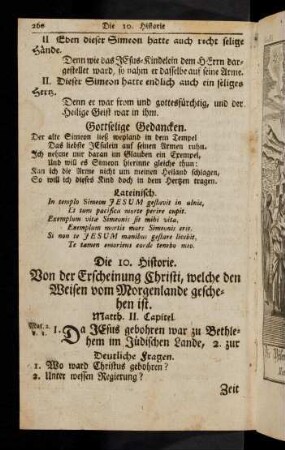 260 Die 10. Historie
II Eben dieser Simeon hatte auch recht selige
Hände.
Denn wie das JEsus-Kindelein dem HErrn dar-
gestellet ward, so nahm er dasselbe auf seine Arme.
II. Dieser Simeon hatte endlich auch ein seliges
Hertz.
Denn er war from und gottesfürchtig, und der
Heilige Geist war in ihm.
Gottselige Gedancken.
Der alte Simeon ließ weyland in dem Tempel
Das liebste JEsulein auf seinen Armen ruhn.
Ich nehme mir daran im Glauben ein Exempel,
Und will es Simeon hierinne gleiche thun:
Kan ich die Arme nicht um meinen Heiland schlagen,
So will ich dieses Kind doch in dem Hertzen tragen.
Lateinisch.
In templo Simeon JESUM gestavit in ulnis,
Et tum pacifica morte perire cupit.
Exemplum vitæ Simeonis sit mihi vita,
Exemplum mortis mors Simeonis erit.
Si non te JESUM manibus gestare licebit,
Te tamen emoriens corde tenebo meo.
Die 10. Historie.
Von der Erscheinung Christi, welche den
Weisen vom Morgenlande gesche-
hen ist.
Matth. II. Capitel.
Mat. 2.
v. 1.
1. Da JEsus gebohren war zu Bethle-
hem im Jüdischen Lande, 2. zur
Deutliche Fragen.
1. Wo ward Christus gebohren?
2. Unter wessen Regierung?
Zeit